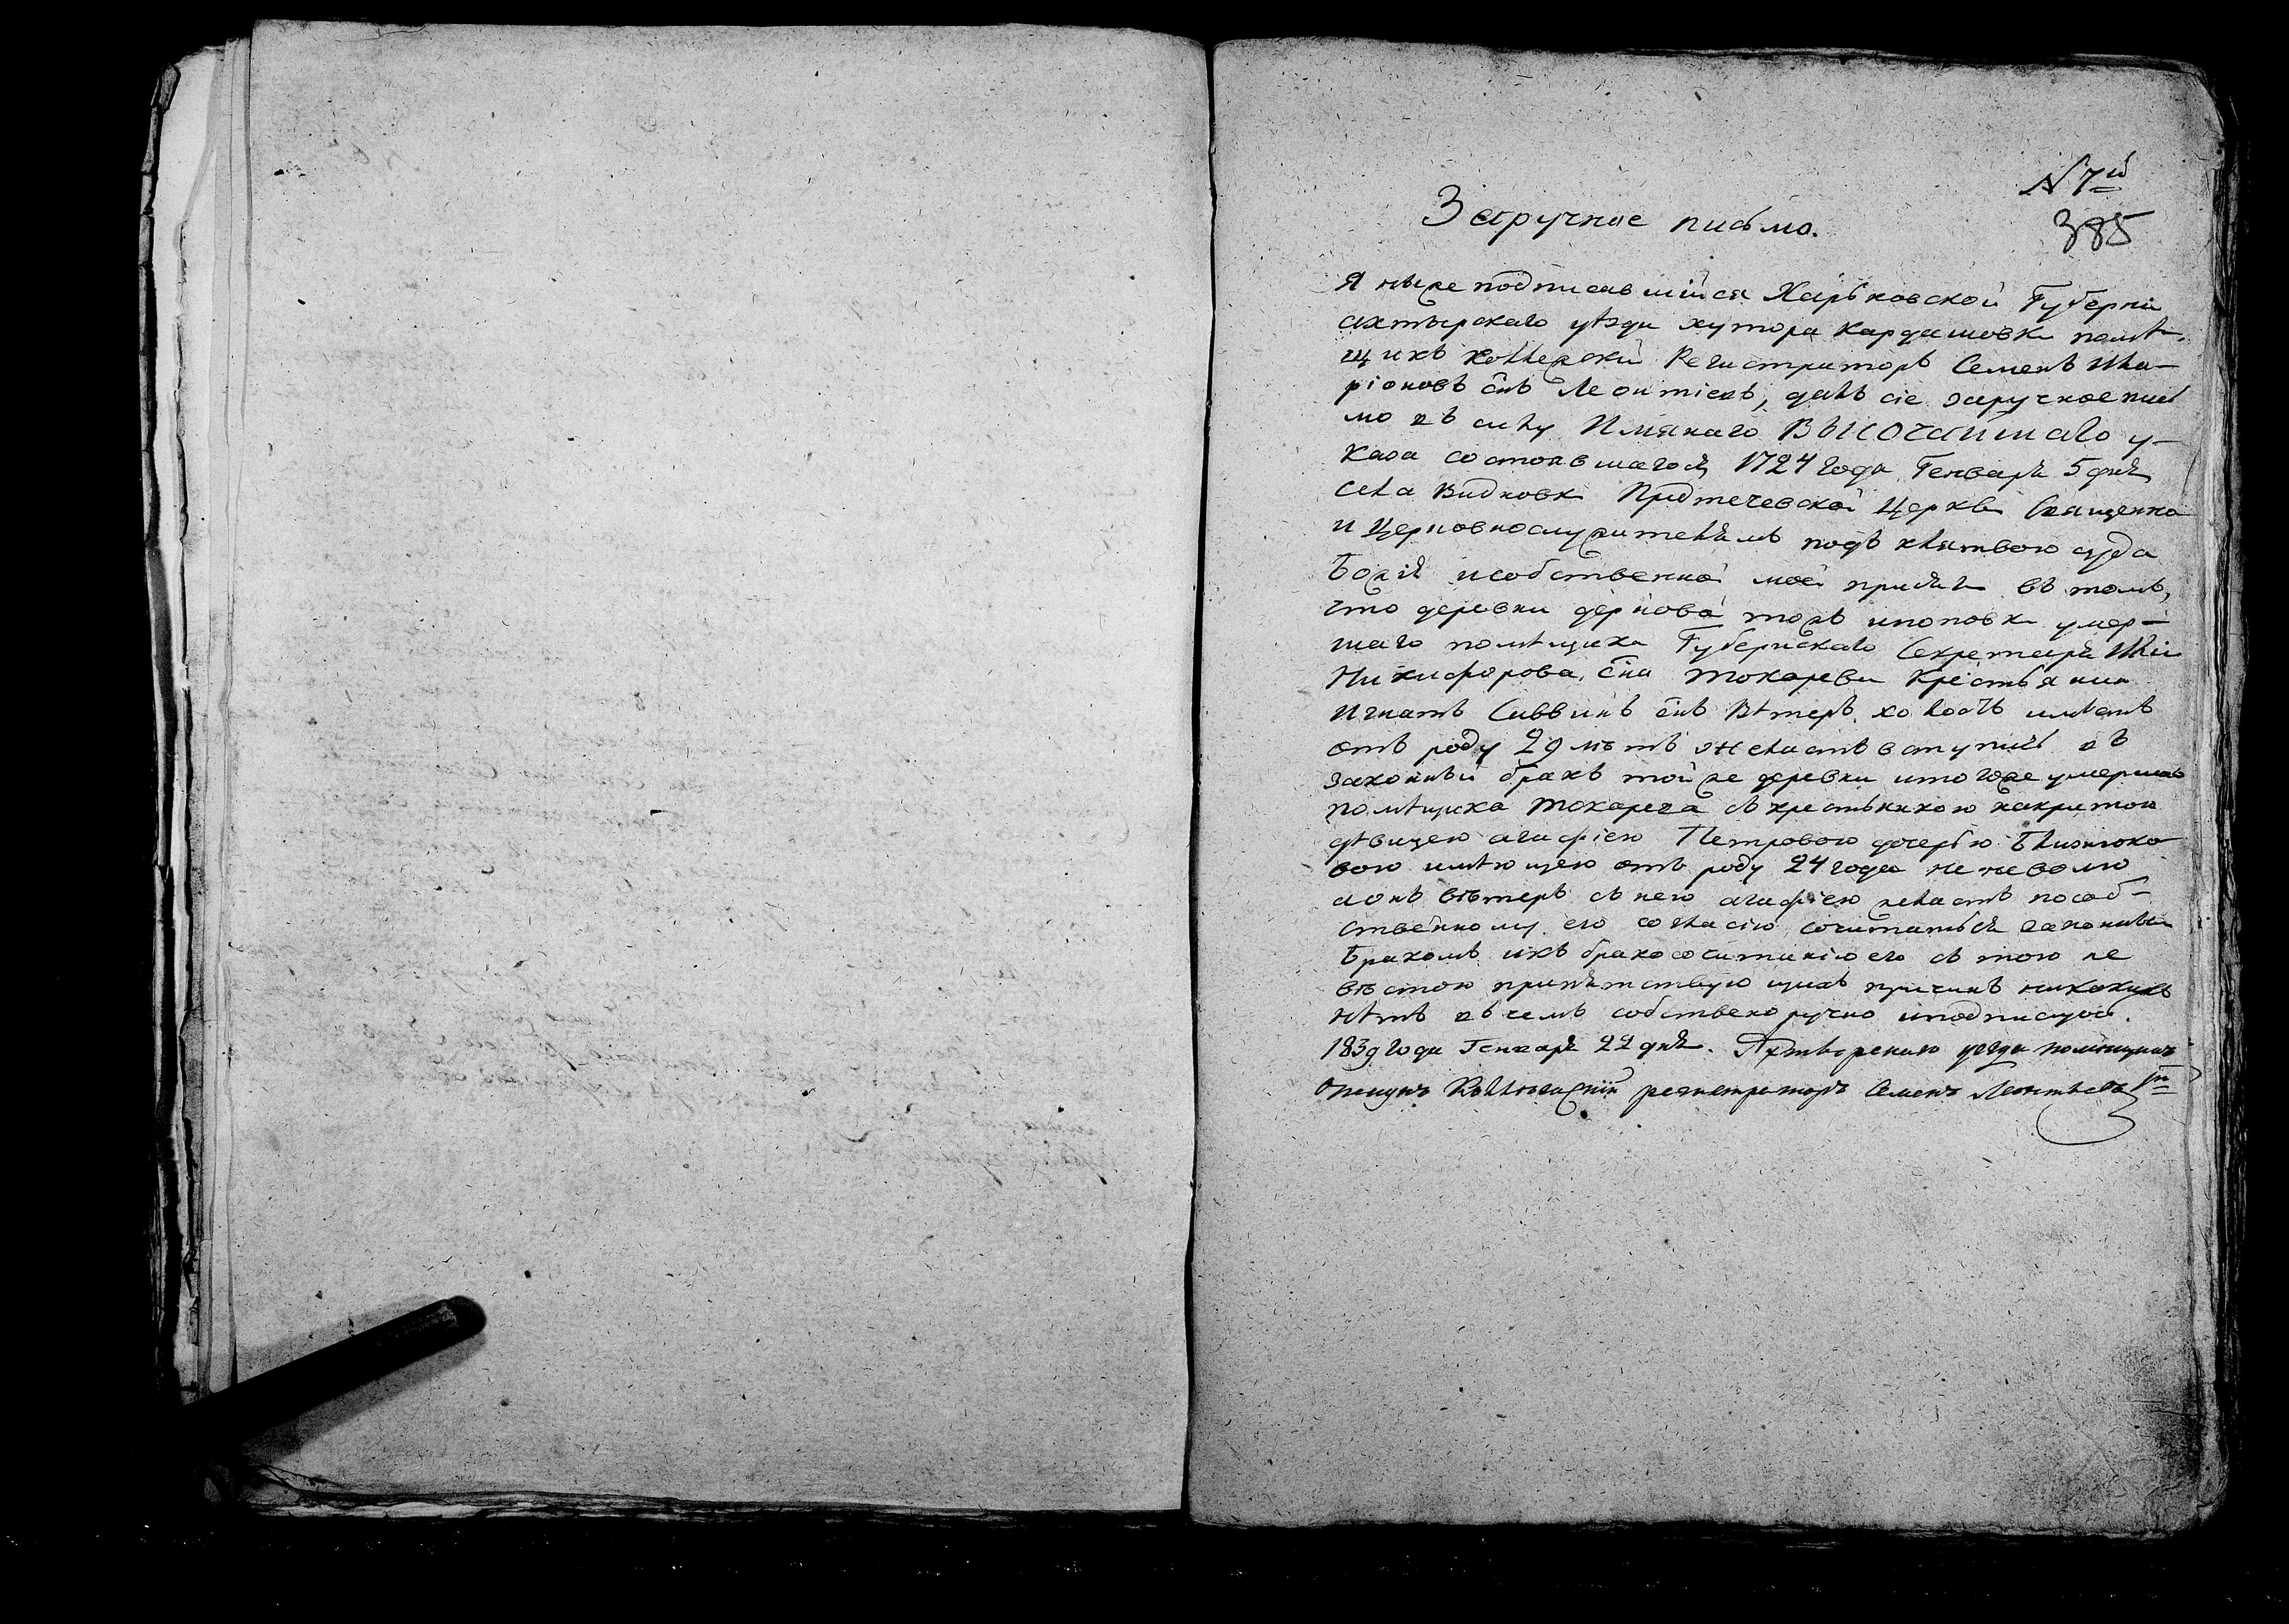 N 7й
385
Заручное письмо.
Я ниже подписавшійся Харьковской Губерніи
ахтырскаго уѣзда хутора Кардашовки помѣ-
щикъ Коллежскій Регистраторъ Семенъ Ила-
ріоновъ снъ Леонтіевъ, далъ сіе заручное пись
мо въ силу Имяннаго ВЫСОЧАЙШАГО у-
каза состоявшагося 1724 года Генваря 5 дня
села Видновки Предтечевской Церкви Священно
и Церковнослужителямъ подъ клятвою суда
Божія и собственной моей присяги въ томъ,
что деревни дерновой тожъ и поповки умер-
шаго помѣщика Губернскаго Секретаря Ильи
Никифорова сна Токарева Крестьянин
Игнатъ Саввинъ снъ Вѣтеръ холостъ имѣетъ
отъ роду 29 лѣтъ желаетъ вступить въ
законный бракъ той же деревни и того же умершаго
помѣщика Токарева съ крестьянкою накрытою
дѣвицею агафіею Петровою дочерью
вою имѣющею отъ роду 24 года не неволю
а онъ вѣтеръ съ нею агафіею желаетъ по соб-
ственному его согласію сочитаться законным
Бракомъ и къ бракосочитанію его съ тою не
вѣстою припятствующихъ причинъ никакихъ
нѣтъ въ чемъ собственоручно и подписуюсь.
1839 года Генваря 22 дня. Ахтырскаго уѣзда помѣщикъ
Опекунъ Коллежскій регистраторъ Семенъ Леонтьевъ